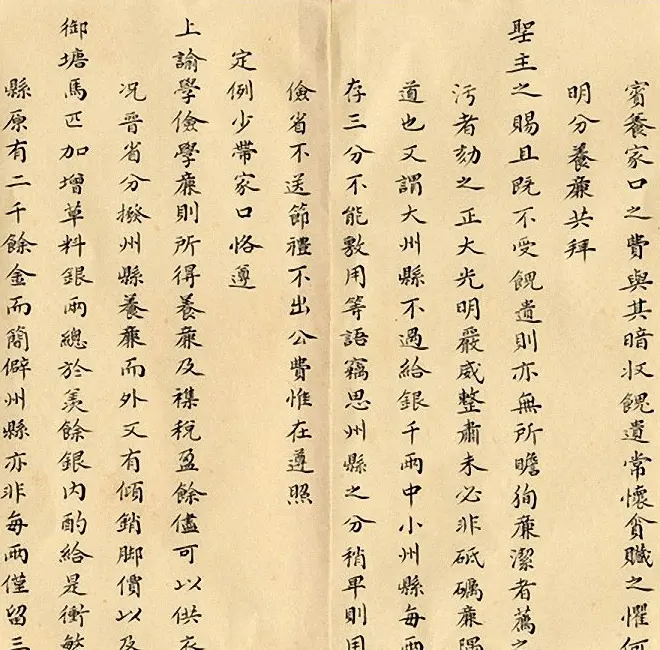 賓養家口之費與其暗收餽遺常懷貪贓之懼何
明分養廉共拜
聖主之賜且既不受餽遺則亦無所瞻徇廉潔者薦之
污者劾之正大光明嚴威整肅未必非砥礪廉隅
道也又謂大州縣不過給銀千兩中小州縣每兩
存三分不能敷用等語竊思州縣之分稍卑則用
儉省不送節禮不出公費惟在遵照
定例少帶家口恪遵
上諭學儉學廉則所得養廉及襍稅盈餘儘可以供衣
况晉省分撥州縣養廉而外又有傾銷脚價以及
御塘馬匹加增草料銀兩總於羡餘銀内酌給是衝繁
縣原有二千餘金而簡僻州縣亦非每兩僅留三